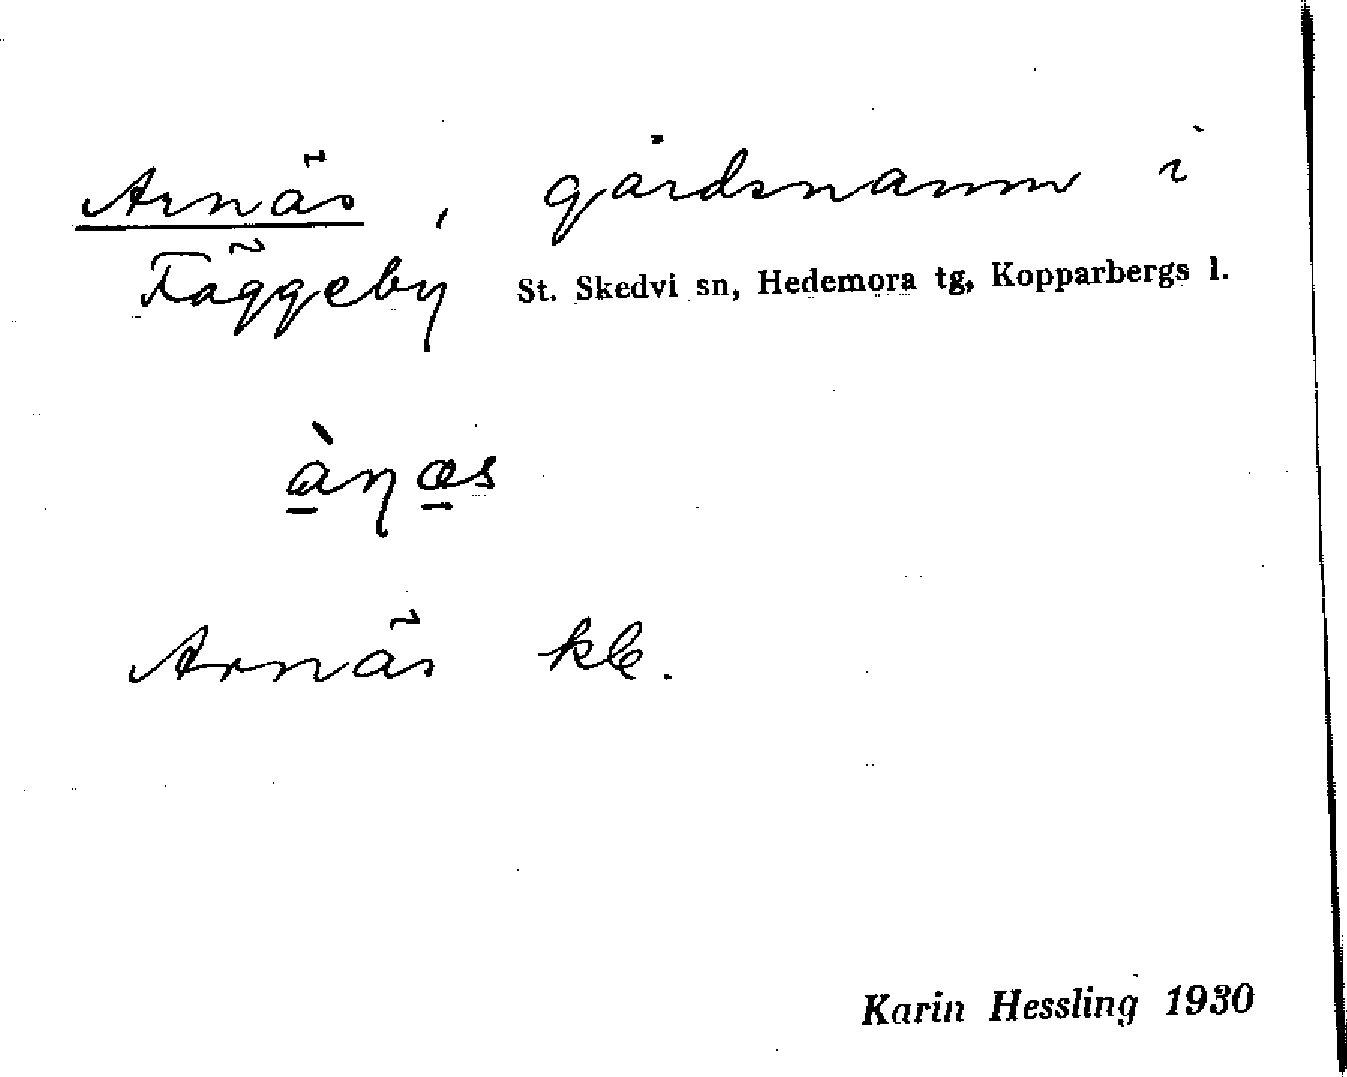 Arnäs, gårdsnamn i
Fäggeby St. Skedvi sn, Hedemora tg, Kopparbergs l.
àṇæs
Arnäs kb.
Karin Hessling 1930